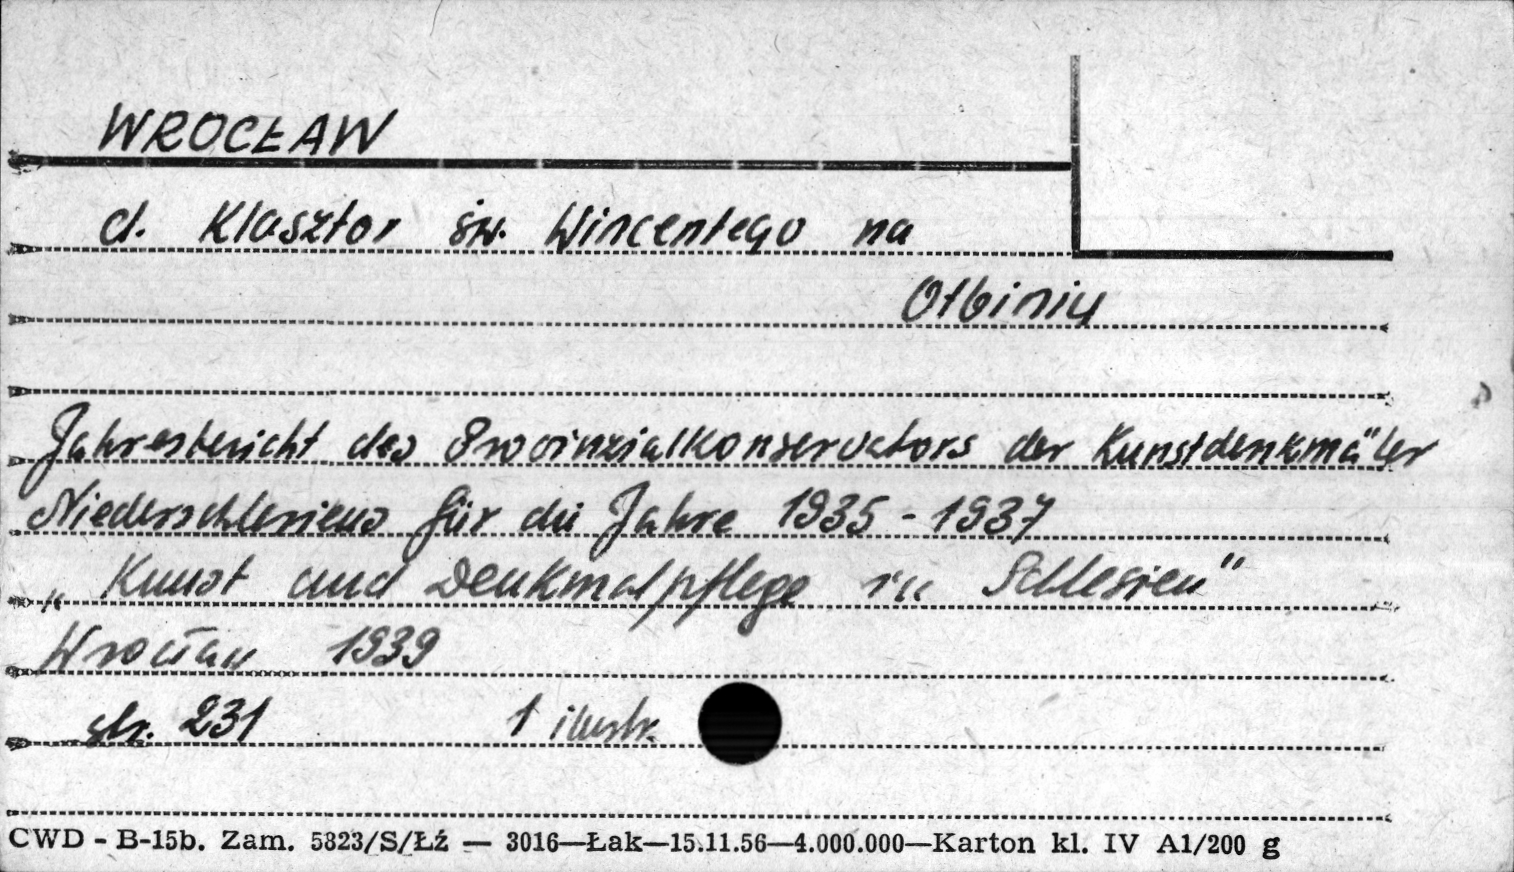 WROCŁAW
d. Klasztor św. Wincentego na
Ołbiniu
Jahresbericht des Provinzialkonservators der Kunstdenkmäler
Niederschlesiens für die Jahre 1935-1937
„Kunst und Denkmalpflege in Schlesien"
Wrocław 1939
str. 231 1 ilustr.
CWD - B-15b. Zam. 5823/S/Łź — 3016—Łak—15.11.56—4.000.000—Karton kl. IV A1/200 g